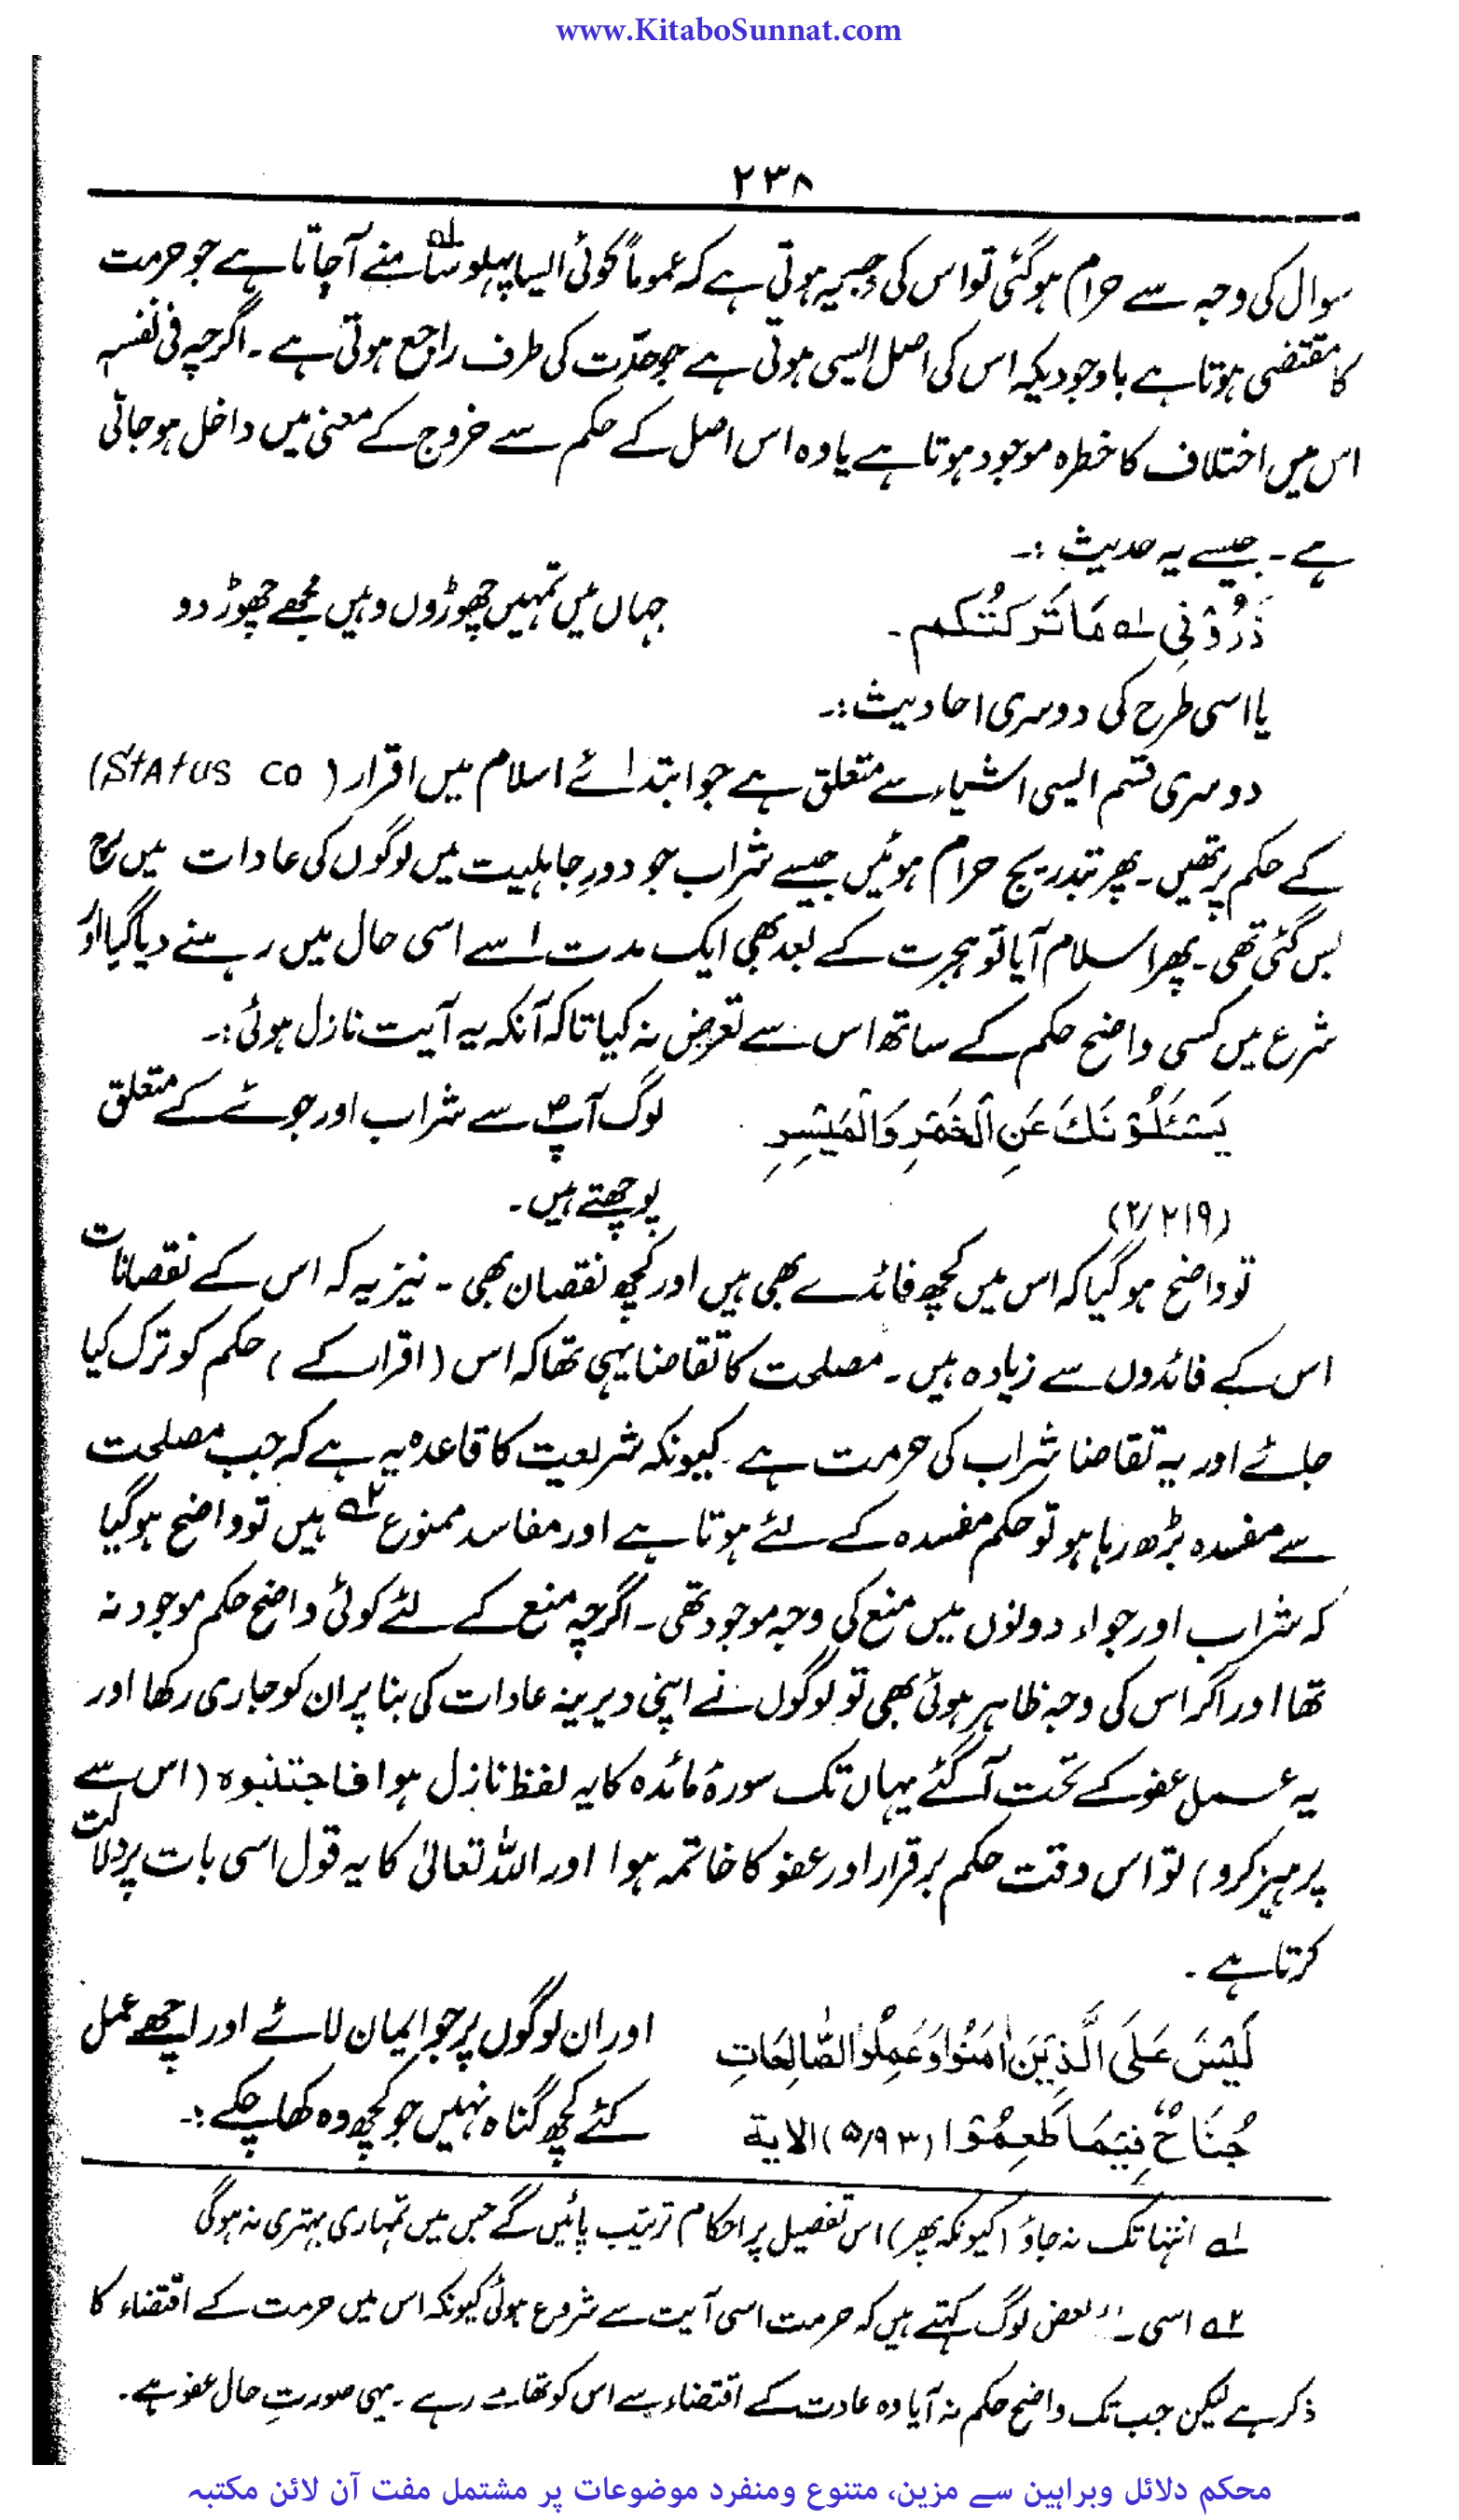 www.KitaboSunnat.com
۲۳۸
سوال کی وجہ سے حرام ہو گئی تو اس کی وجہ یہ ہوتی ہے کہ عموماً کوئی ایسا پہلو سامنے لہ آجاتا ہے جو حرمت
کا مقتضی ہوتا ہے باوجودیکہ اس کی اصل ایسی ہوتی ہے جو حلّت کی طرف راجع ہوتی ہے ۔ اگرچہ فی نفسہٖ
اس میں اختلاف کا خطرہ موجود ہوتا ہے یا وہ اس اصل کے حکم سے خروج کے معنی میں داخل ہو جاتی
ہے ۔ جیسے یہ حدیث :۔
ذَرُوْنِی لہ مَا تَرَکْتُکُم ۔
جہاں میں تمہیں چھوڑوں وہیں مجھے چھوڑ دو
یا اسی طرح کی دوسری احادیث :۔
دوسری قسم ایسی اشیاء سے متعلق ہے جو ابتدائے اسلام میں اقرار ( Status co)
کے حکم پر تھیں ۔ پھر بتدریج حرام ہوئیں جیسے شراب جو دورِ جاہلیت میں لوگوں کی عادات میں رچ
بس گئی تھی ۔ پھر اسلام آیا تو ہجرت کے بعد بھی ایک مدت اسے اسی حال میں رہنے دیا گیا اور
شرع میں کسی واضح حکم کے ساتھ اس سے تعرض نہ کیا تا کہ آنکہ یہ آیت نازل ہوئی :۔
یَسْئَلُوْنَکَ عَنِ الْخَمْرِ وَالْمَیْسِرِ
لوگ آپؐ سے شراب اور جوئے کے متعلق
(۲/۲۱۹)
پوچھتے ہیں ۔
تو واضح ہو گیا کہ اس میں کچھ فائدے بھی ہیں اور کچھ نقصان بھی ۔ نیز یہ کہ اس کے نقصانات
اس کے فائدوں سے زیادہ ہیں ۔ مصلحت کا تقاضا یہی تھا کہ اس (اقرار کے) حکم کو ترک کیا
جائے اور یہ تقاضا شراب کی حرمت ہے ۔ کیونکہ شریعت کا قاعدہ یہ ہے کہ جب مصلحت
سے مفسدہ بڑھ رہا ہو تو حکم مفسدہ کے لئے ہوتا ہے اور مفاسد ممنوع ۲ہ ہیں تو واضح ہو گیا
کہ شراب اور جواء دونوں میں منع کی وجہ موجود تھی ۔ اگرچہ منع کے لئے کوئی واضح حکم موجود نہ
تھا اور اگر اس کی وجہ ظاہر ہوئی بھی تو لوگوں نے اپنی دیرینہ عادات کی بنا پر ان کو جاری رکھا اور
یہ عمل عفو کے تحت آ گئے یہاں تک سورۂ مائدہ کا یہ لفظ نازل ہوا فاجتنبوہ (اس سے
پرہیز کرو) تو اس وقت حکم برقرار اور عفو کا خاتمہ ہوا اور اللہ تعالیٰ کا یہ قول اسی بات پر دلالت
کرتا ہے ۔
لَیْسَ عَلَی الَّذِیْنَ اٰمَنُوْا وَعَمِلُوا الصّٰالِحَاتِ
اور ان لوگوں پر جو ایمان لائے اور اچھے عمل
جُنَاحٌ فِیْمَا طَعِمُوْا (۵/۹۳) الایة
کئے کچھ گناہ نہیں جو کچھ وہ کھا چکے :۔
لہ انتہا تک نہ جاؤ (کیونکہ پھر) اس تفصیل پر احکام ترتیب پائیں گے جس میں تمہاری بہتری نہ ہوگی
۲ہ اسی بعض لوگ کہتے ہیں کہ حرمت اسی آیت سے شروع ہوئی کیونکہ اس میں حرمت کے اقتضاء کا
ذکر ہے لیکن جب تک واضح حکم نہ آیا وہ عادت کے اقتضاء سے اس کو تھامے رہے ۔ یہی صورتِ حال عفو ہے ۔
محکم دلائل وبراہین سے مزین، متنوع ومنفرد موضوعات پر مشتمل مفت آن لائن مکتبہ